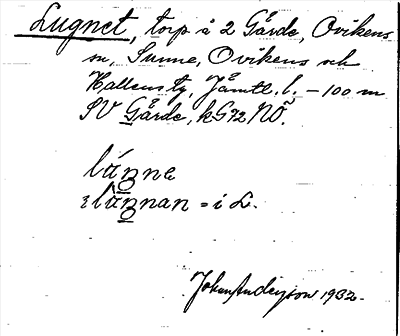 Lugnet, torp å 2 Gärde, Ovikens
sn, Sunne, Ovikens och
Hallens tg, Jämtl. l. – 100 m
SV Gärde, k G72 NÖ.
lánne
lännan = i L.
Johan Anderson 1932.